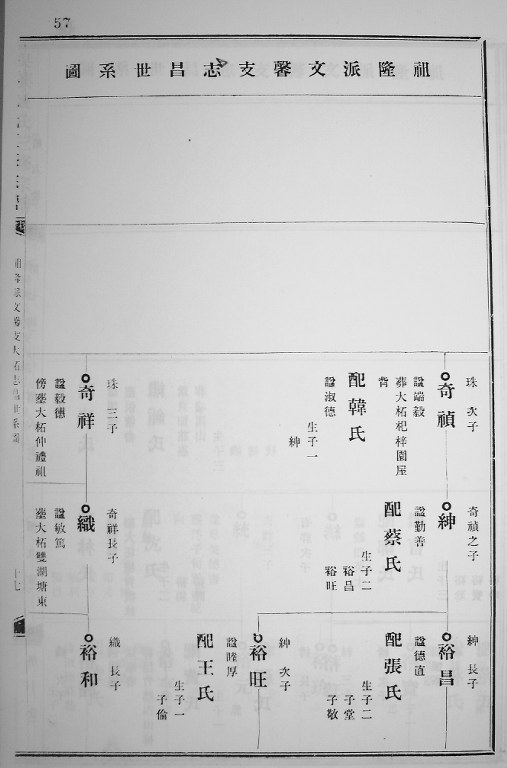 57
祖隆派文馨支志昌世系圖
珠 次子
奇禎
諡端毅
葬大柘杞梓園屋
背
配韓氏
諡淑德
生子一
紳
珠 三子
奇祥
諡毅德
傍塟大柘仲禮祖
奇禎之子
紳
諡勤善
配蔡氏
生子二
裕昌
裕旺
奇祥長子
織
諡敏篤
塟大柘雙湖塘東
紳 長子
裕昌
諡德直
配張氏
生子二
子堂
子敬
紳 次子
裕旺
諡厚
配王氏
生子一
子倫
織 長子
裕和
十七